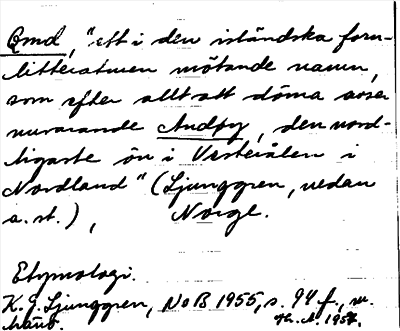 Qmd, "ett i den isländska forn-
litteraturen mötande namn,
som efter allt att döma avser
nuvarande Andøy, den nord-
ligaste ön i Vesterålen i
Nordland" (Ljunggren, nedan
a. st.), Norge.
Etymologi.
K. G. Ljunggren, NoB 1955, s. 94 f., m.
hänv. Th. A. 1957.